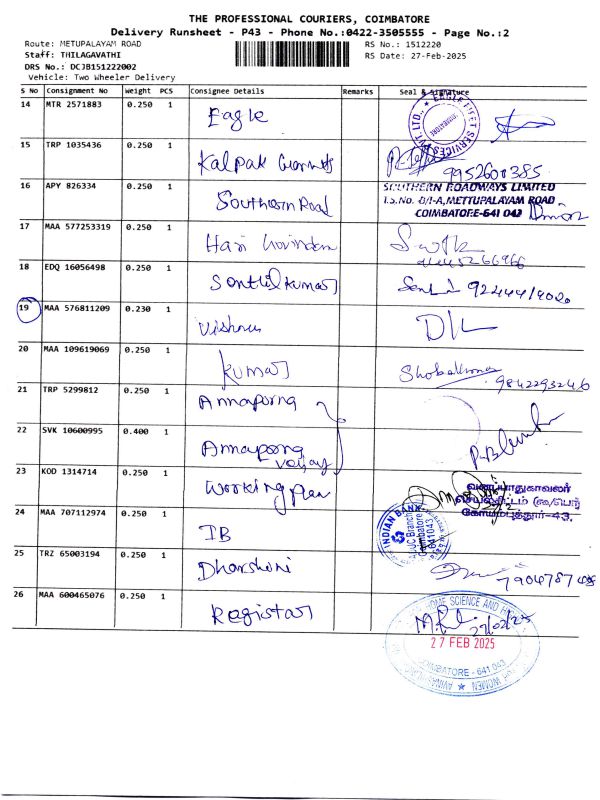 THE PROFESSIONAL COURIERS, COIMBATORE
Delivery Runsheet - P43 - Phone No.:0422-3505555 - Page No.:2
Route: METUPALAYAM ROAD
RS No.: 1512220
Staff: THILAGAVATHI
RS Date: 27-Feb-2025
DRS No.: DCJB151222002
Vehicle: Two Wheeler Delivery
S No Consignment No Weight PCS Consignee Details Remarks Seal & Signature
14 MTR 2571883 0.250 1
Eagle
15 TRP 1035436 0.250 1
Kalpak
9952601385
16 APY 826334 0.250 1
Southern Road
SOUTHERN ROADWAYS LIMITED
I.S.No. 8/1-A, METTUPALAYAM ROAD
COIMBATORE-641 043
17 MAA 577253319 0.250 1
Hari Govindan
18 EDQ 16056498 0.250 1
Senthil kumar
19 MAA 576811209 0.230 1
Vishnu
20 MAA 109619069 0.250 1
Kumar
9842293246
21 TRP 5299812 0.250 1
Annapurna
22 SVK 10600995 0.400 1
Annapurna
23 KOD 1314714 0.250 1
Working Plan
வனப்பாதுகாவலர்
செயல்திட்டம்
கோயம்புத்தூர்-43.
24 MAA 707112974 0.250 1
IB
INDIAN BANK
Coimbatore
641043
25 TRZ 65003194 0.250 1
Dharshini
26 MAA 600465076 0.250 1
Registrar
27/02/25
HOME SCIENCE AND
27 FEB 2025
COIMBATORE - 641 043
WOMEN